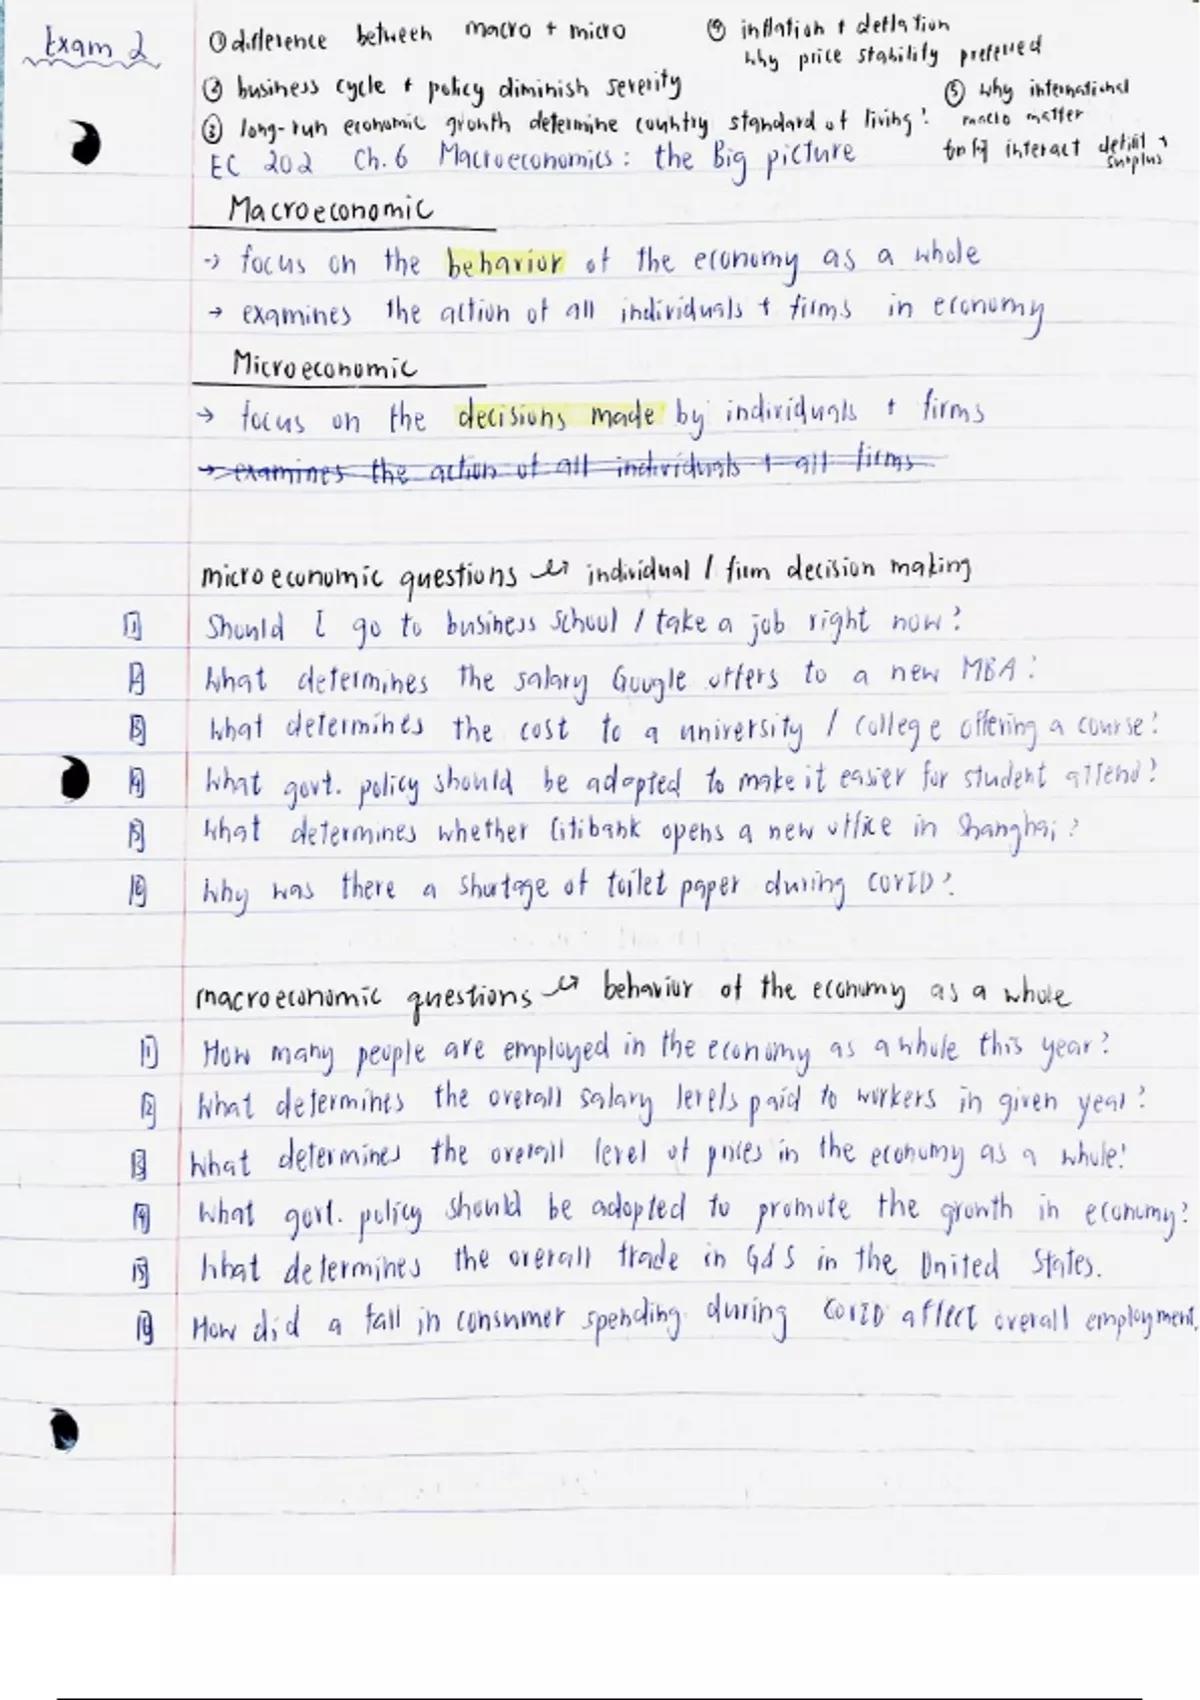 Exam 2
① difference between macro + micro
② business cycle + policy diminish severity
③ long-run economic growth determine country standard of living?
④ inflation + deflation
why price stability preferred
⑤ why international
macro matter
interact deficit +
surplus
EC 202 Ch. 6 Macroeconomics: the Big picture
Macroeconomic
→ focus on the behavior of the economy as a whole
→ examines the action of all individuals + firms in economy
Microeconomic
→ focus on the decisions made by individuals + firms
→ examines the action of all individuals + all firms
microeconomic questions ↔ individual / firm decision making
1 Should I go to business school / take a job right now?
2 What determines the salary Google offers to a new MBA?
3 What determines the cost to a university / college offering a course?
4 What govt. policy should be adopted to make it easier for student attend?
5 What determines whether Citibank opens a new office in Shanghai?
6 Why was there a shortage of toilet paper during COVID?
macroeconomic questions ↔ behavior of the economy as a whole
1 How many people are employed in the economy as a whole this year?
2 What determines the overall salary levels paid to workers in given year?
3 What determines the overall level of prices in the economy as a whole?
4 What govt. policy should be adopted to promote the growth in economy?
5 What determines the overall trade in G&S in the United States.
6 How did a fall in consumer spending during COVID affect overall employment.